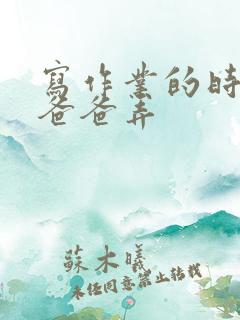 寫作業的時
爸爸弄
蘇木曦
未經同意禁止轉載